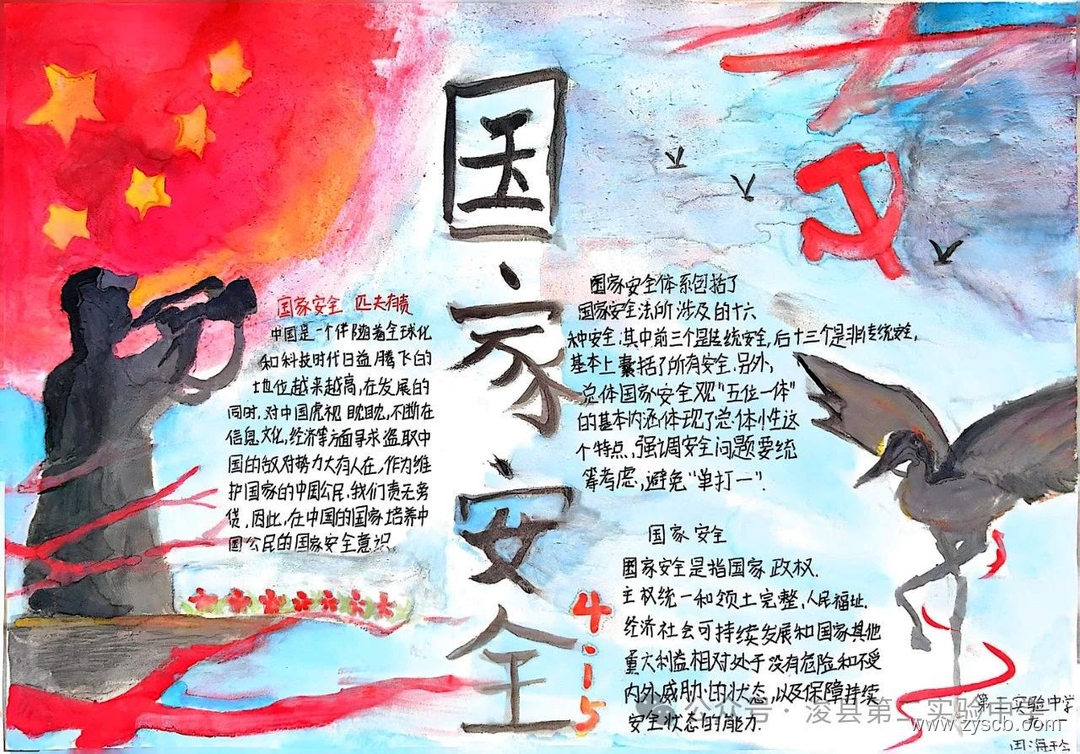 国家安全
4·15
国家安全 匹夫有责
中国是一个伴随着全球化
和科技时代日益腾飞的
地位越来越高,在发展的
同时,对中国虎视眈眈,不断在
信息,文化,经济等方面寻求盗取中
国的敌对势力大有人在,作为维
护国家的中国公民,我们责无旁
贷,因此,在中国的国家培养中
国公民的国家安全意识。
国家安全体系包括了
国家安全法所涉及的十六
种安全:其中前三个是传统安全,后十三个是非传统安全,
基本上囊括了所有安全.另外,
总体国家安全观"五位一体"
的基本内涵体现了总体性这
个特点,强调安全问题要统
筹考虑,避免"单打一".
国家安全
国家安全是指国家政权.
主权统一和领土完整,人民福祉.
经济社会可持续发展和国家其他
重大利益相对处于没有危险和不受
内外威胁的状态,以及保障持续
安全状态的能力.
公众号·浚县第二实验中学
实验中学
www.zyscb.com